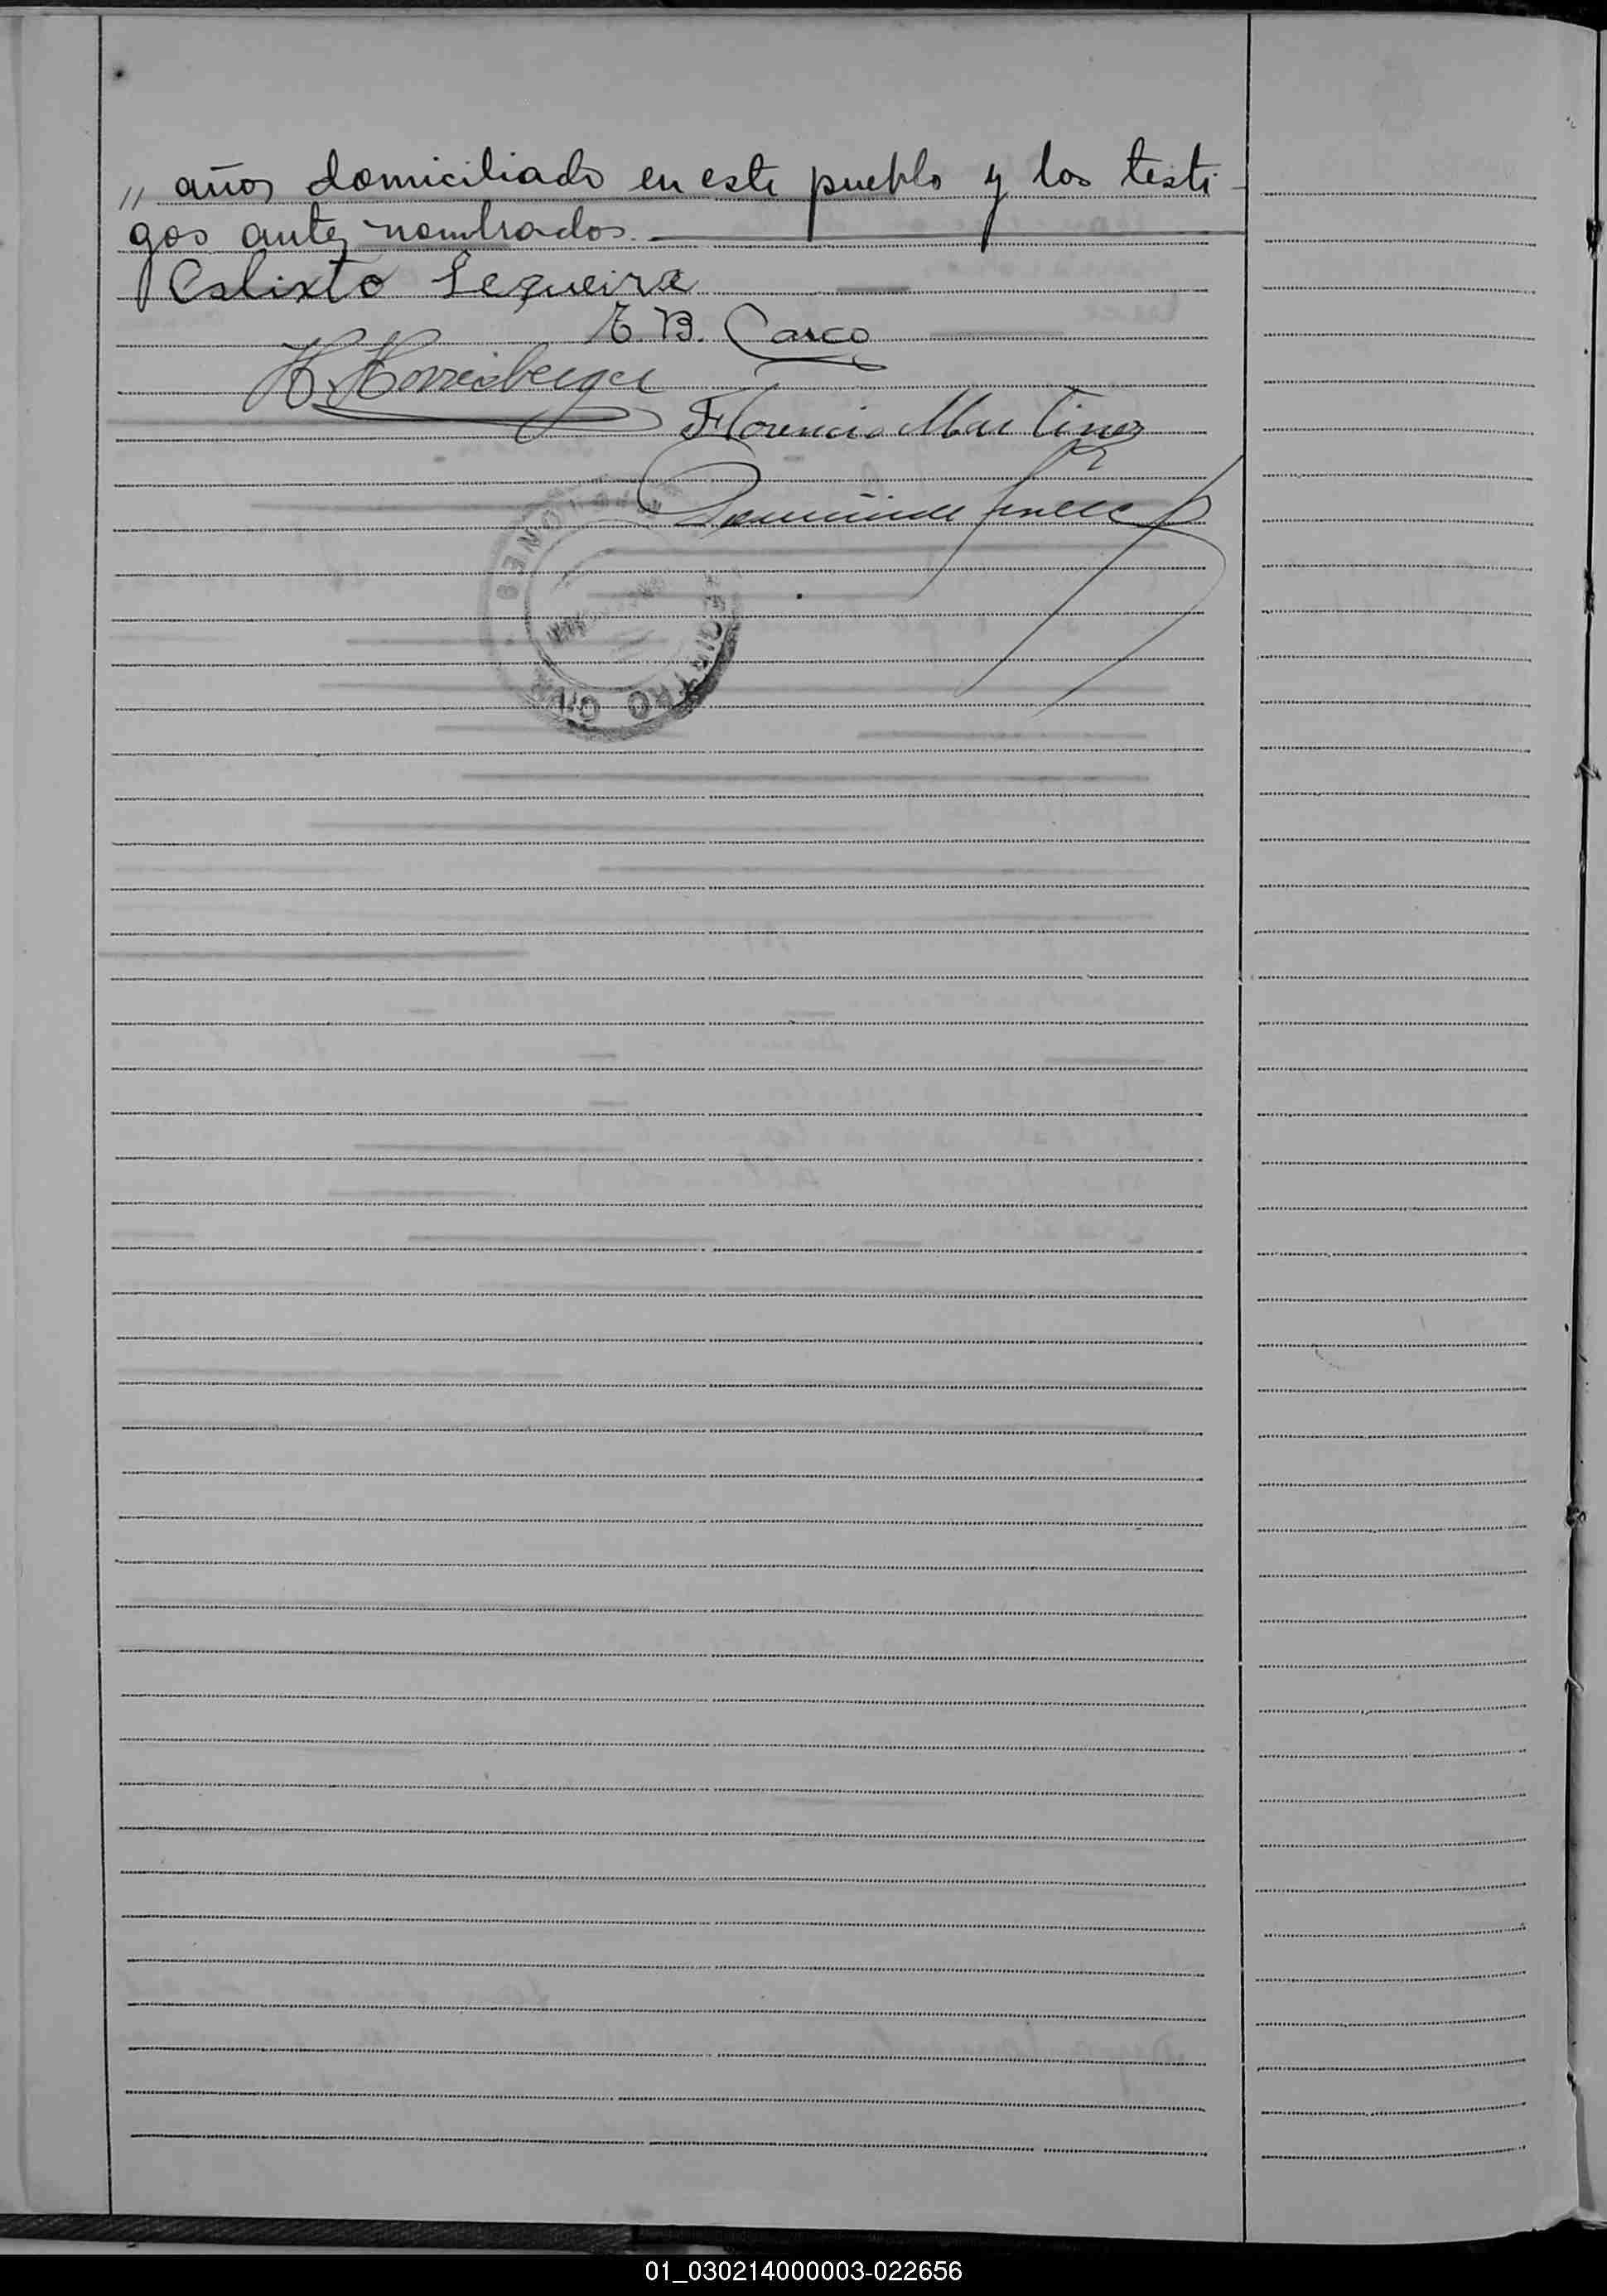 „ años domiciliado en este pueblo y los testi-
gos antes nombrados.
Calixto Sequeira
E. B. Carco
H. Horrisberger
Florencio Martinez
MISIONES
REGISTRO CIVIL
01_030214000003-022656